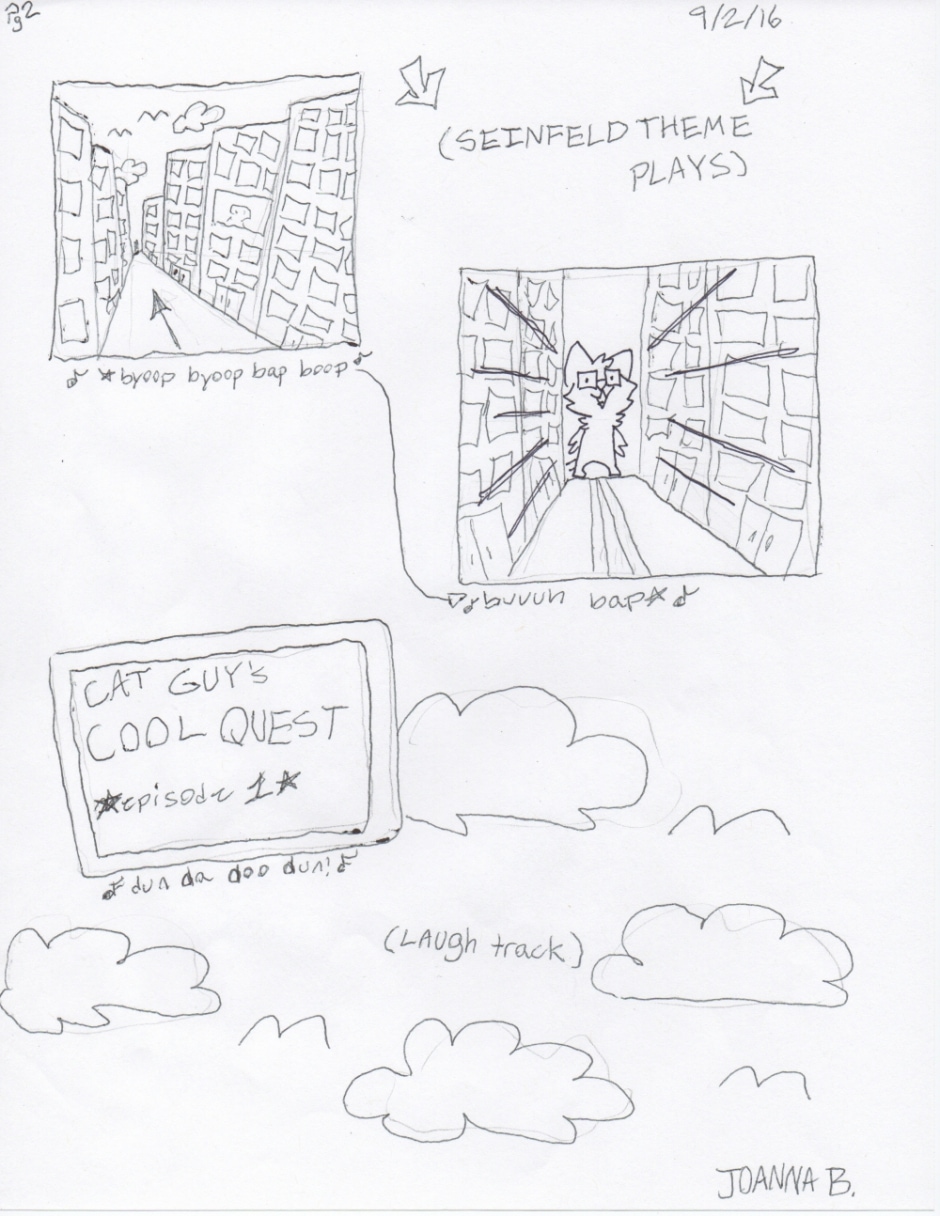 Pg 2
9/2/16
(SEINFELD THEME
PLAYS)
♫ *byoop byoop bap boop ♫
♫ buuuh bap* ♫
CAT GUY's
COOL QUEST
*episode 1*
♫ dun da doo dun! ♫
(LAUgh track)
JOANNA B.